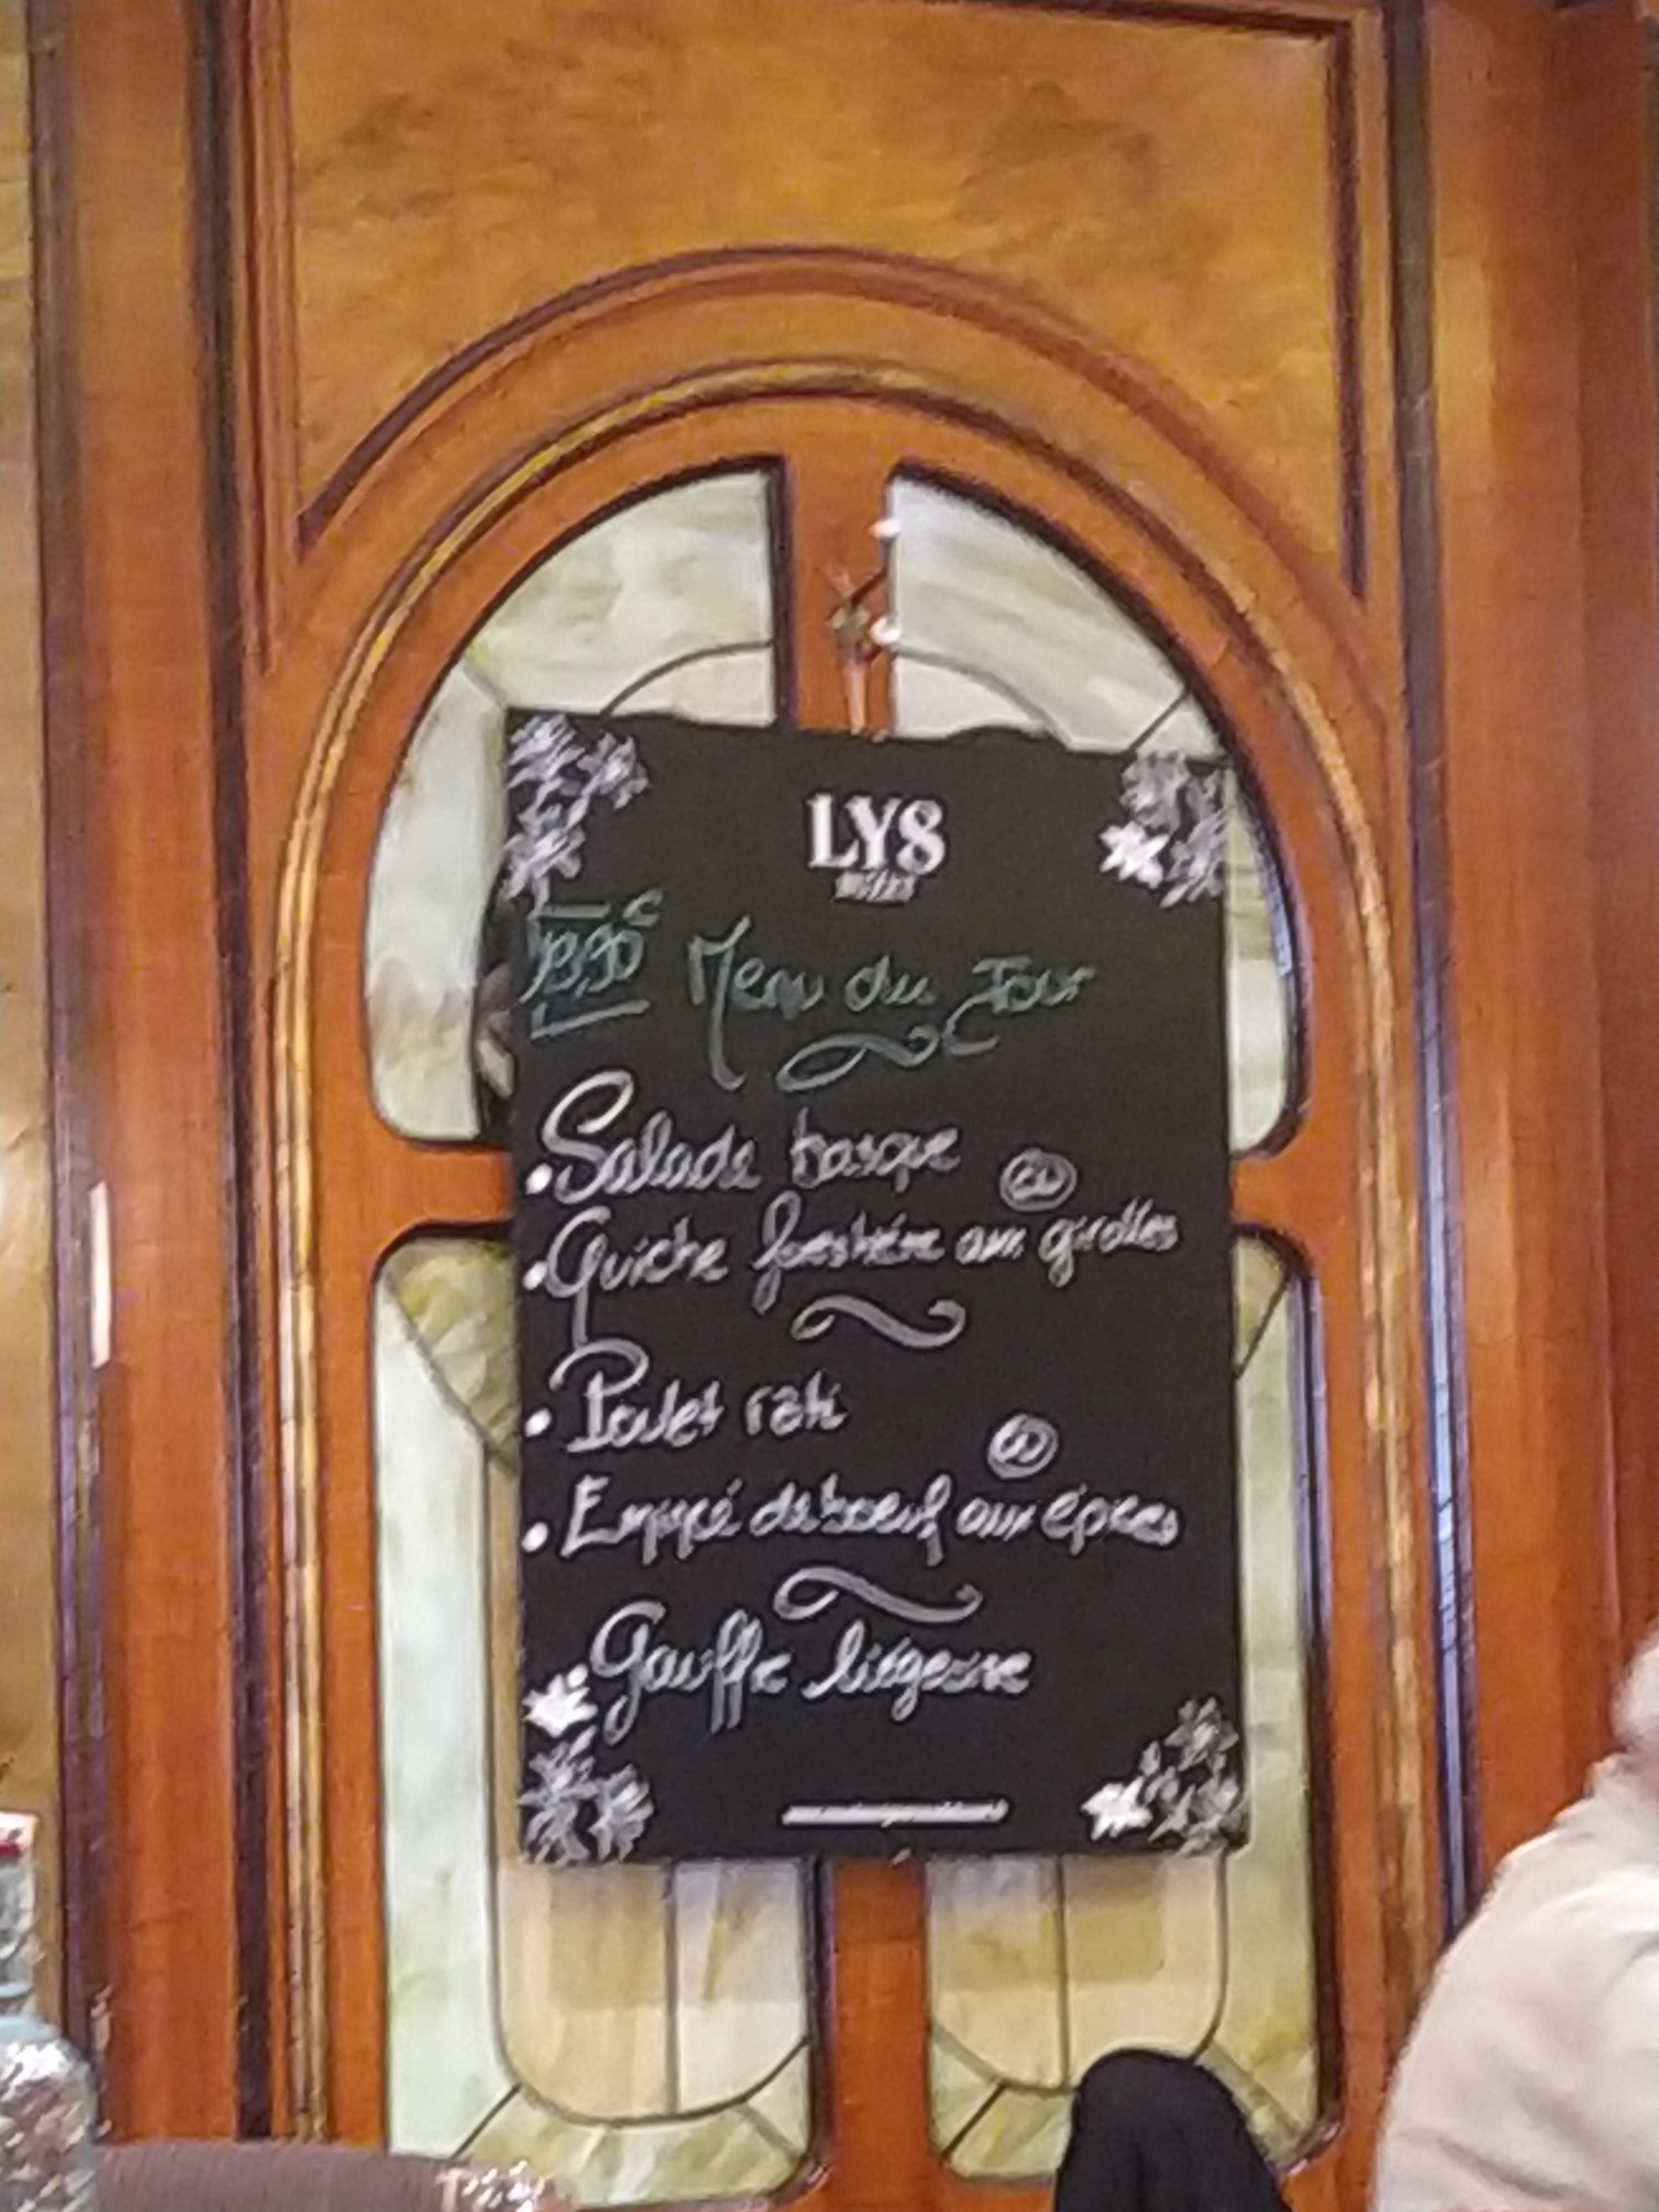 LYS
Menu du Jour
• Salade basque
ou
• Quiche forestière aux girolles
• Poulet rôti
ou
• de boeuf aux épices
• Gauffe liégeoise